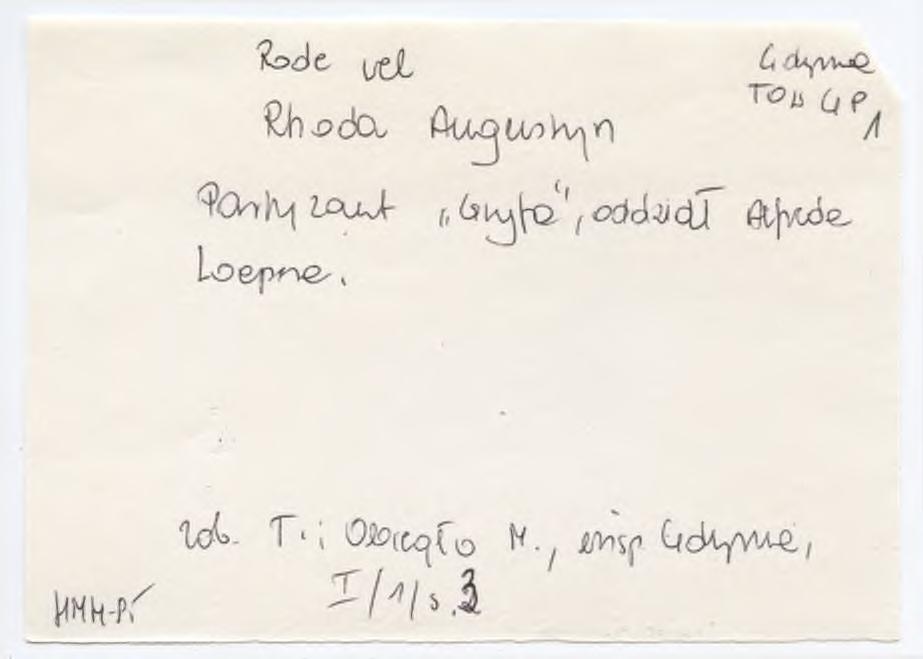 Rode vel
Rhoda Augustyn
Gdynia
TOW GP
1
Partyzant „Gryfa", oddział Alfreda
Loepne.
zob. T.: Obiegło M., insp Gdynia,
I/1/s.3
HMM-Pi